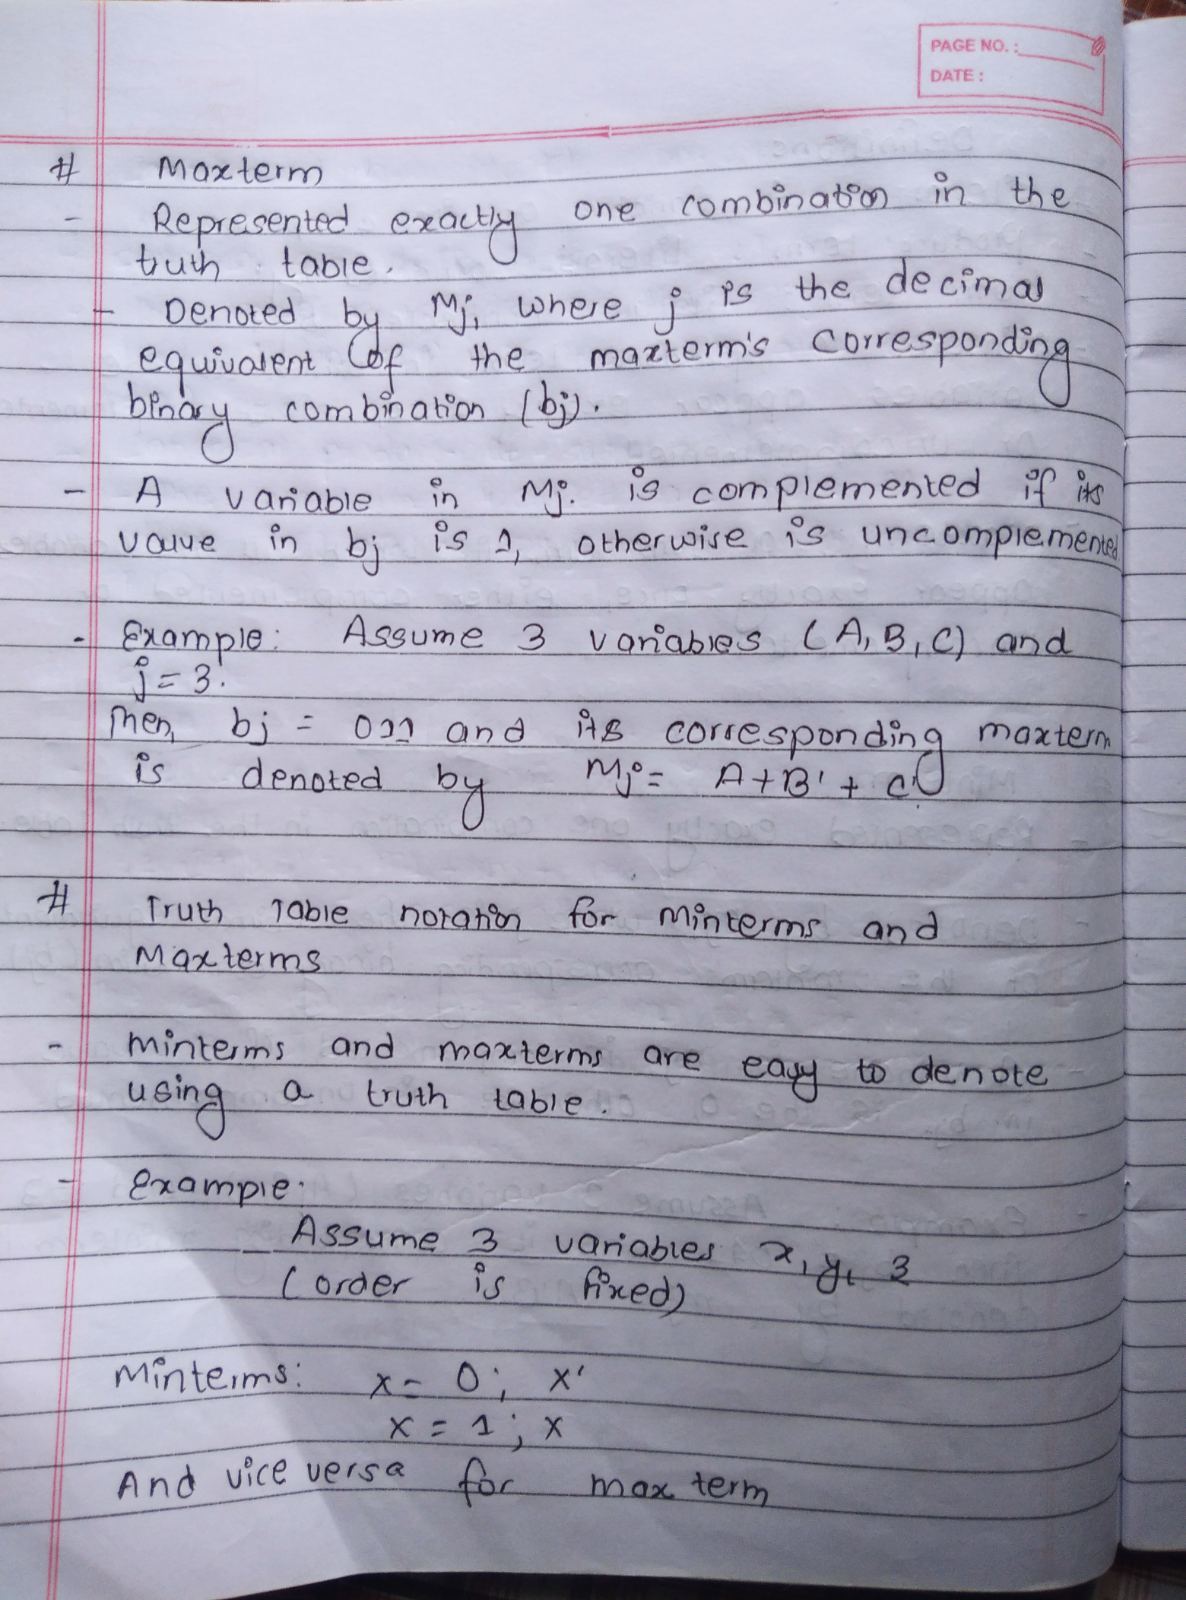 PAGE NO. :
DATE :
# Maxterm
- Represented exactly one combination in the
truth table.
- Denoted by Mj, where j is the decimal
equivalent of the maxterm's corresponding
binary combination (bj).
- A variable in Mj. is complemented if its
value in bj is 1, otherwise is uncomplemented
- Example: Assume 3 variables (A, B, C) and
j = 3.
Then, bj = 011 and its corresponding maxterm
is denoted by Mj = A + B' + C'
# Truth Table notation for Minterms and
Maxterms
- Minterms and maxterms are easy to denote
using a truth table.
- Example.
- Assume 3 variables x, y, z
(order is fixed)
Minterms: x = 0; x'
x = 1; x
And vice versa for max term